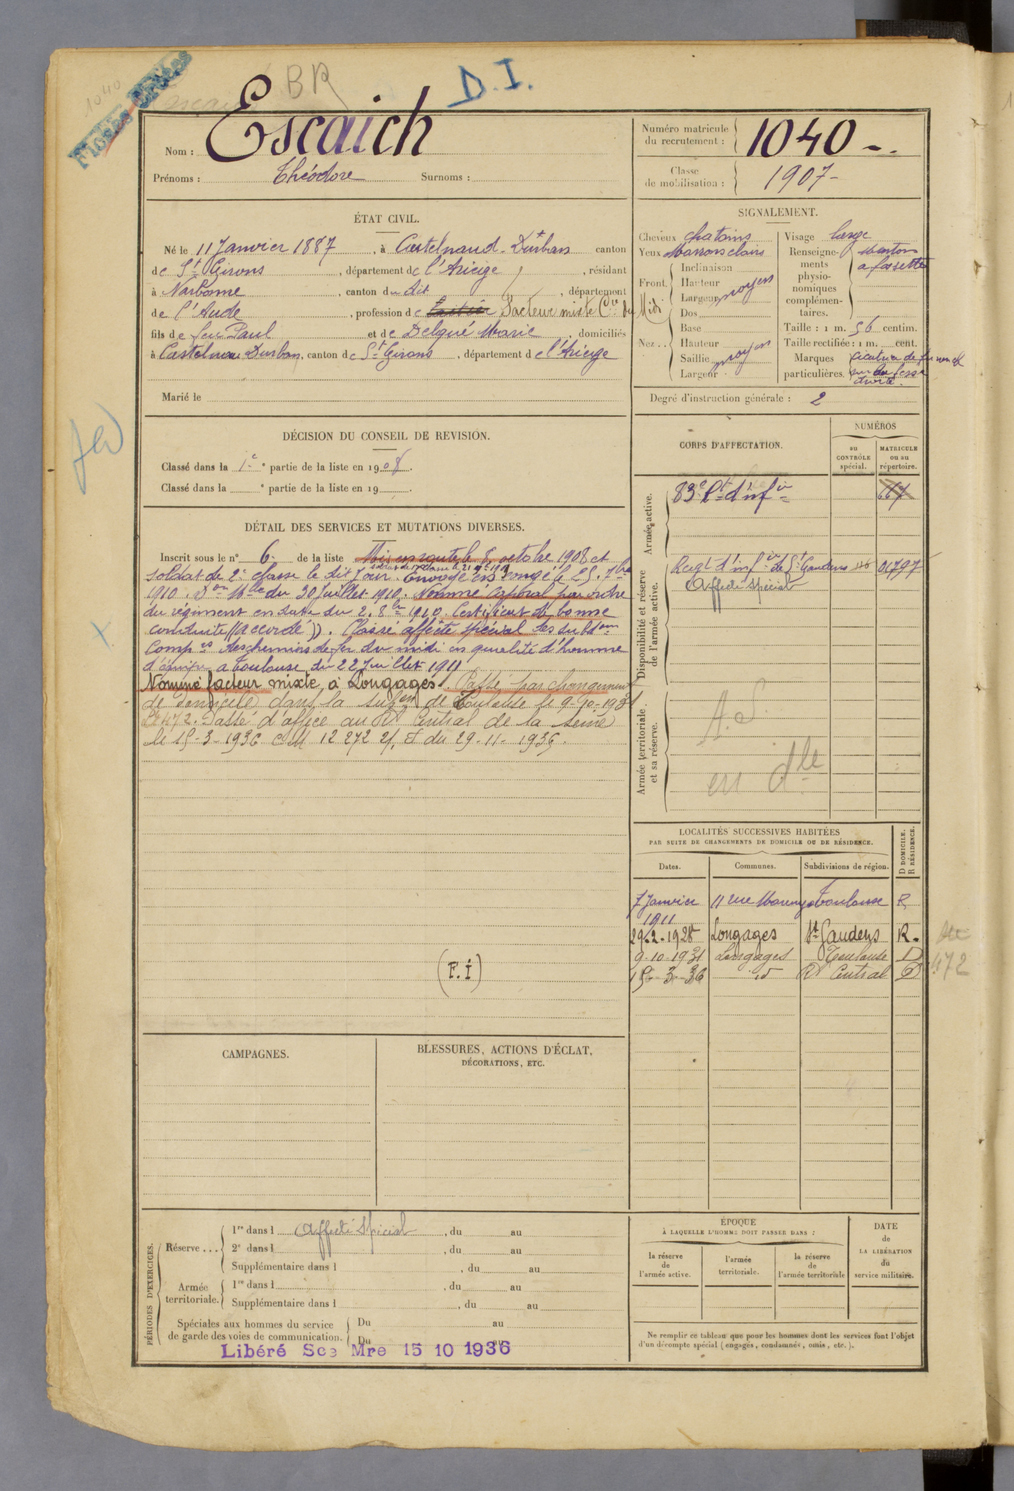 1040
Fiches Créées
BR
D.I.
Nom : Escaich
Prénoms : Théodore Surnoms :
Numéro matricule du recrutement : 1040
Classe de mobilisation : 1907
ÉTAT CIVIL.
Né le 11 Janvier 1887, à Castelnaud-Durban canton
de St Girons, département de l'Ariège, résidant
à Narbonne, canton du dit, département
de l'Aude, profession de Facteur mixte Cie du Midi
fils de feu Paul et de Delqué Marie, domiciliés
à Castelnau Durban, canton de St Girons, département de l'Ariège
Marié le
SIGNALEMENT.
Cheveux chatains
Yeux Marrons clairs
Front. Inclinaison
Hauteur
Largeur moyens
Nez.. Dos
Base
Hauteur
Saillie moyens
Largeur
Visage large
Renseignements physionomiques complémentaires. Menton à fossette
Taille : 1 m. 56 centim.
Taille rectifiée : 1 m. cent.
Marques particulières. Cicatrice de
sur la fesse
droite.
Degré d'instruction générale : 2
DÉCISION DU CONSEIL DE REVISION.
Classé dans la 1e partie de la liste en 1908.
Classé dans la e partie de la liste en 19 .
DÉTAIL DES SERVICES ET MUTATIONS DIVERSES.
Inscrit sous le n° 6 de la liste Mis en route le 8 octobre 1908 et
soldat de 2e classe le dit jour. Envoyé en congé le 25 7bre
1910. du 20 juillet 1910. Nommé Caporal par ordre
du régiment en date du 2 8bre 1910. Certificat de bonne
conduite "(accordé)". Classé affecté spécial des subdons
Compies des chemins de fer du midi en qualité d'homme
d'équipe à Toulouse du 22 Juillet 1911
Nommé facteur mixte, à Longages. Passé par changement
de domicile dans la subon de Toulouse le 9-10-1931
472. Passé d'office au Rt Central de la Seine
le 15-3-1936 CM 12 272 2/, du 29-11-1935.
(F.I)
CORPS D'AFFECTATION.
NUMÉROS
au CONTRÔLE spécial.
MATRICULE ou au répertoire.
Armée active.
83e Rt d'infie
Disponibilité et réserve de l'armée active.
Regt d'infie de St Gaudens 01797
Affecté Spécial
Armée territoriale et sa réserve.
A.S.
en dle
LOCALITÉS SUCCESSIVES HABITÉES
PAR SUITE DE CHANGEMENTS DE DOMICILE OU DE RÉSIDENCE.
D DOMICILE. R RÉSIDENCE.
Dates. Communes. Subdivisions de région.
7 Janvier 1911 11 rue Toulouse R
29.2.1928 Longages St Gaudens R.
9-10-1931 Longages Toulouse D
15-3-36 id Rt Central D
472
CAMPAGNES.
BLESSURES, ACTIONS D'ÉCLAT,
DÉCORATIONS, ETC.
PÉRIODES D'EXERCICES.
Réserve ... 1re dans l Affecté Spécial, du au
2e dans l , du au
Supplémentaire dans l , du au
Armée territoriale. 1re dans l , du au
Supplémentaire dans l , du au
Spéciales aux hommes du service Du au
de garde des voies de communication. Du au
Libéré Sce Mre 15 10 1936
ÉPOQUE
À LAQUELLE L'HOMME DOIT PASSER DANS :
la réserve de l'armée active.
l'armée territoriale.
la réserve de l'armée territoriale
DATE de LA LIBÉRATION du service militaire.
Ne remplir ce tableau que pour les hommes dont les services font l'objet
d'un décompte spécial (engagés, condamnés, omis, etc.).